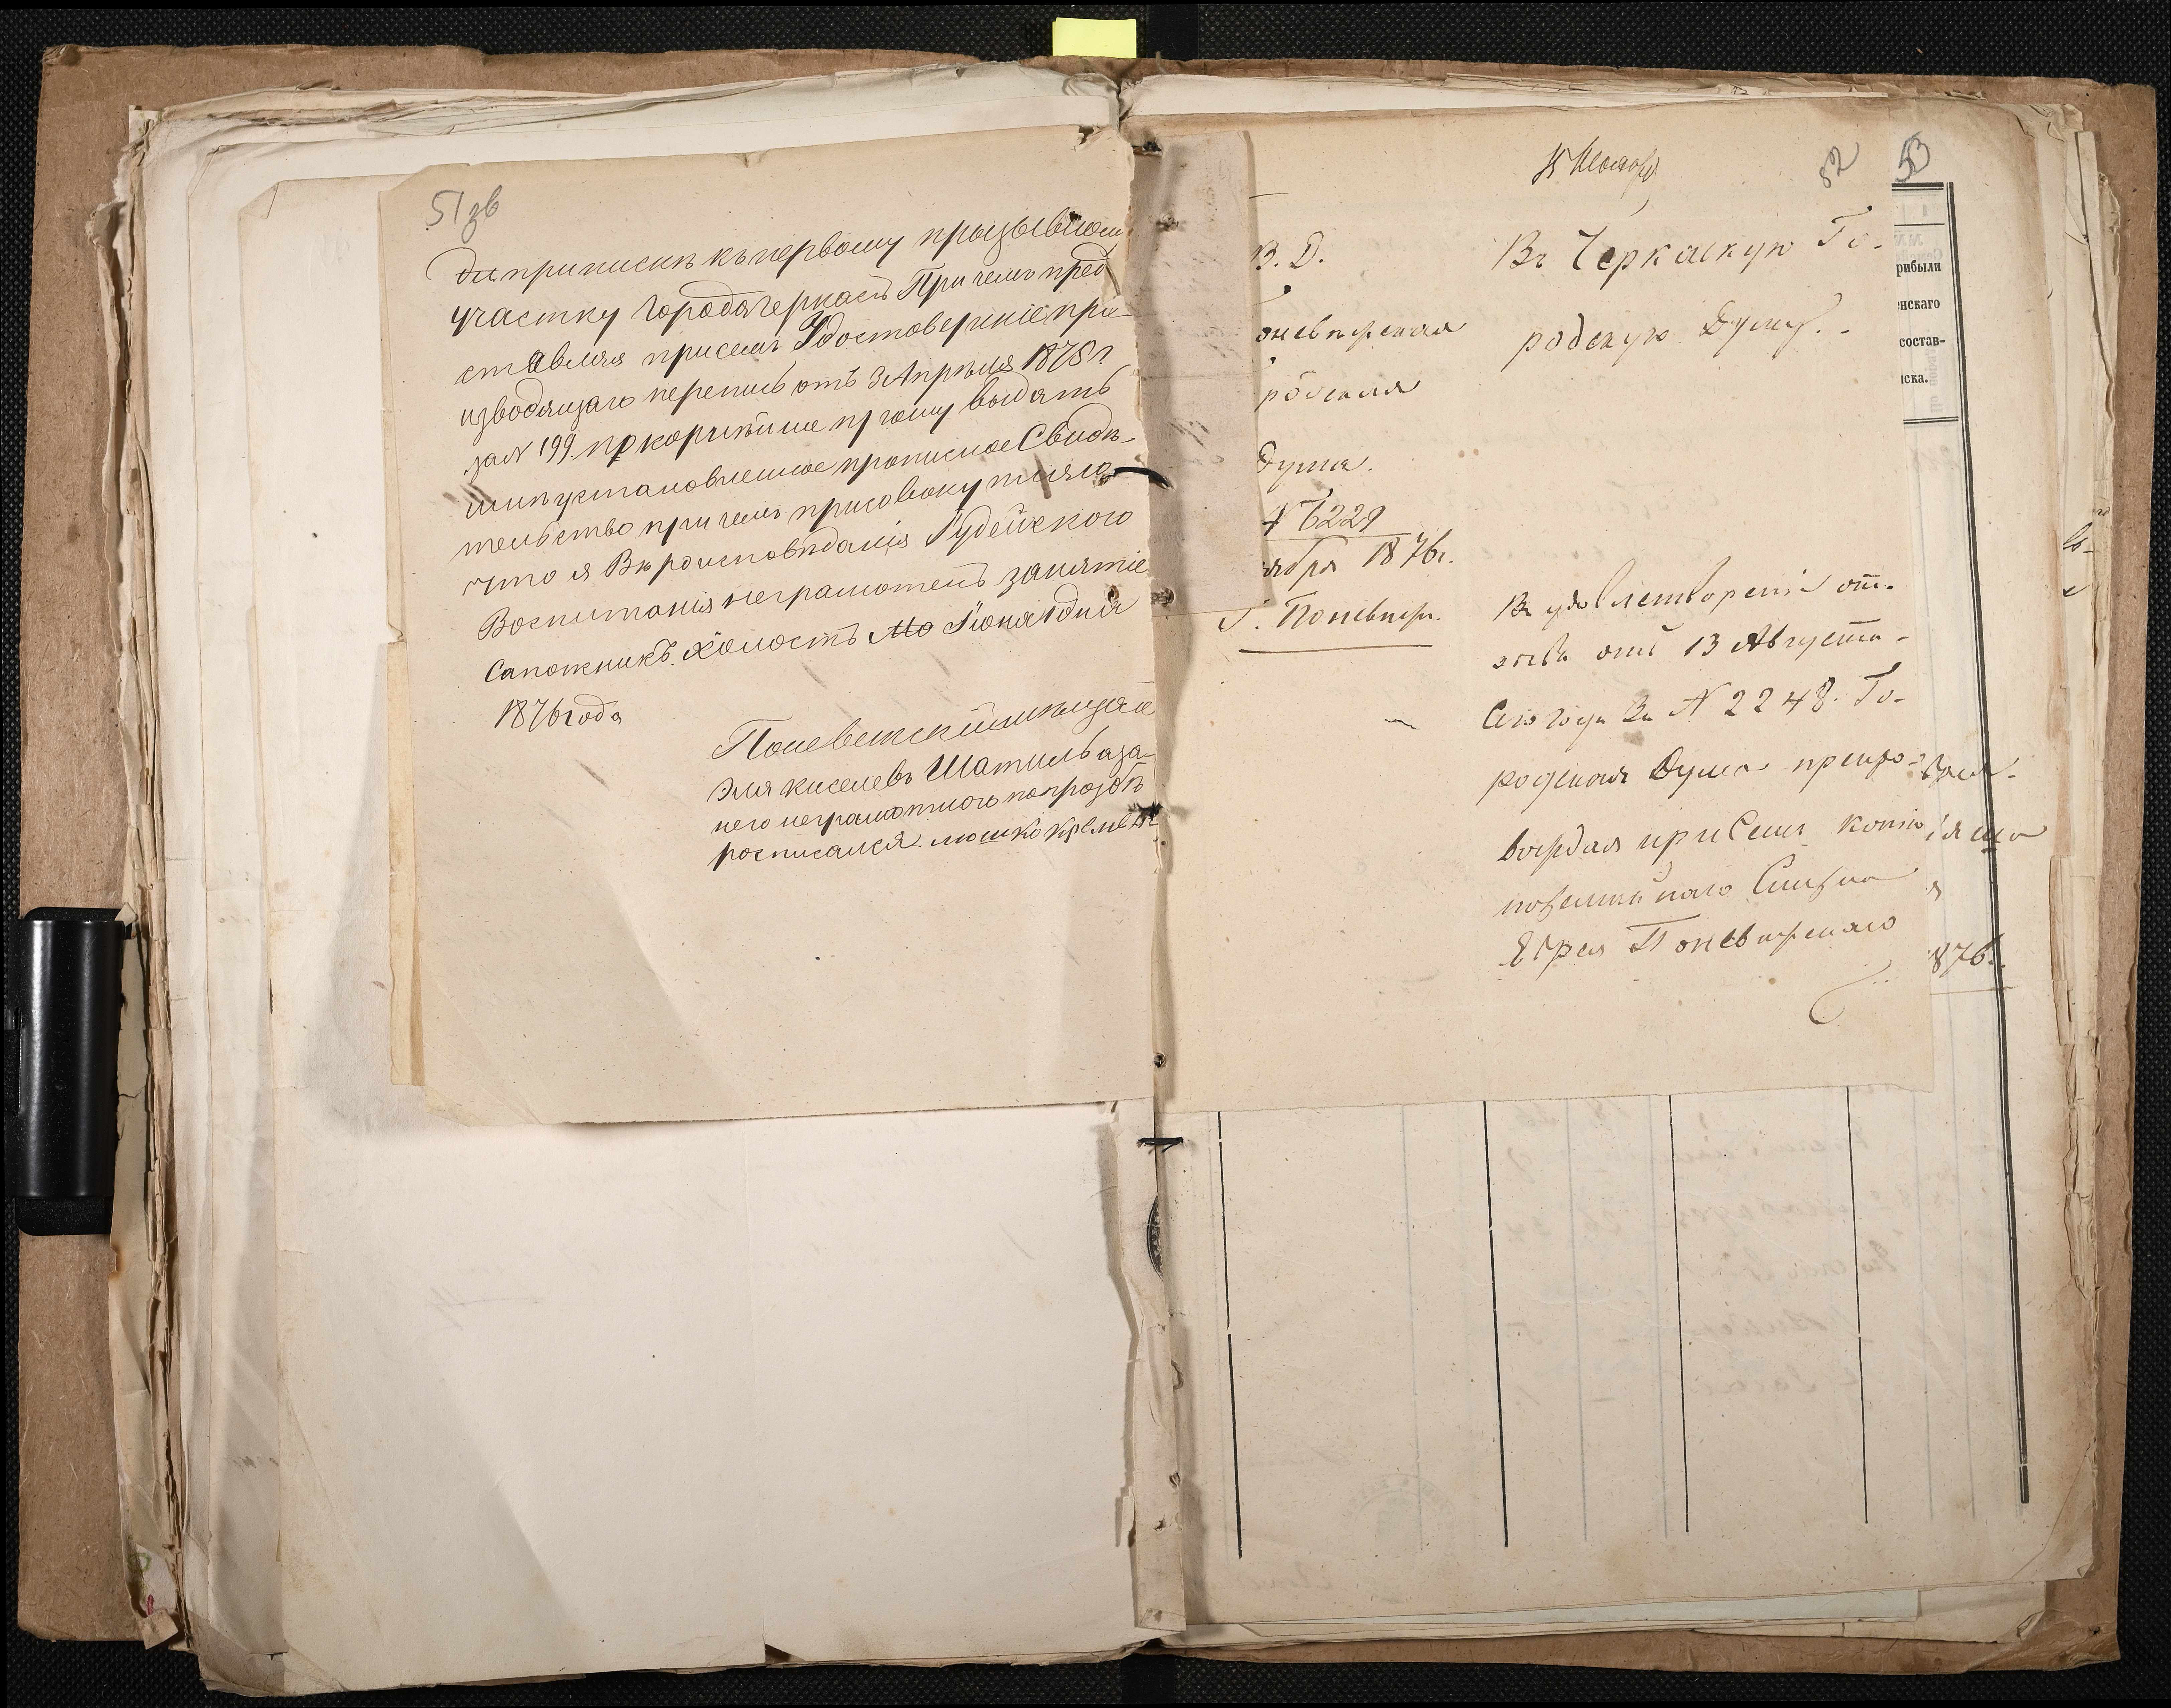 51 зв
ди приписки къ первому призывному
участку города Черкасъ При чемъ пред
ставляя присемъ Удостовереніе про
изводящаго перепись отъ 3 Апреля 1876 г.
за № 199 покорнѣйше прошу выдать
мнѣ установленное прописное Свидѣ-
тельство при чемъ присовокупляю
что я Вѣроисповѣданія Іудейского
Воспитанія неграмотенъ занятіе
Сапожникъ. Холостъ Мо Іюня 1 дня
1876 года
Поневежскій мѣщан
Эля Киселевъ Шатиль а за
него неграмотного по прозбѣ
росписался. мошко
52
53
В. Д.
Въ Черкаскую Го-
оневѣжская
родскую Думу.
родская
Дума.
№ 6229
ября 1876 г.
Г. Поневѣж.
Въ удовлетвореніе от-
зыва отъ 13 Августа
Сего года За № 2248. Го-
родская Дума препро-
вождая при Семъ копію
посемейнаго Списка
Еврея Поневѣжскаго
876.
рибыли
нскаго
состав-
ска.